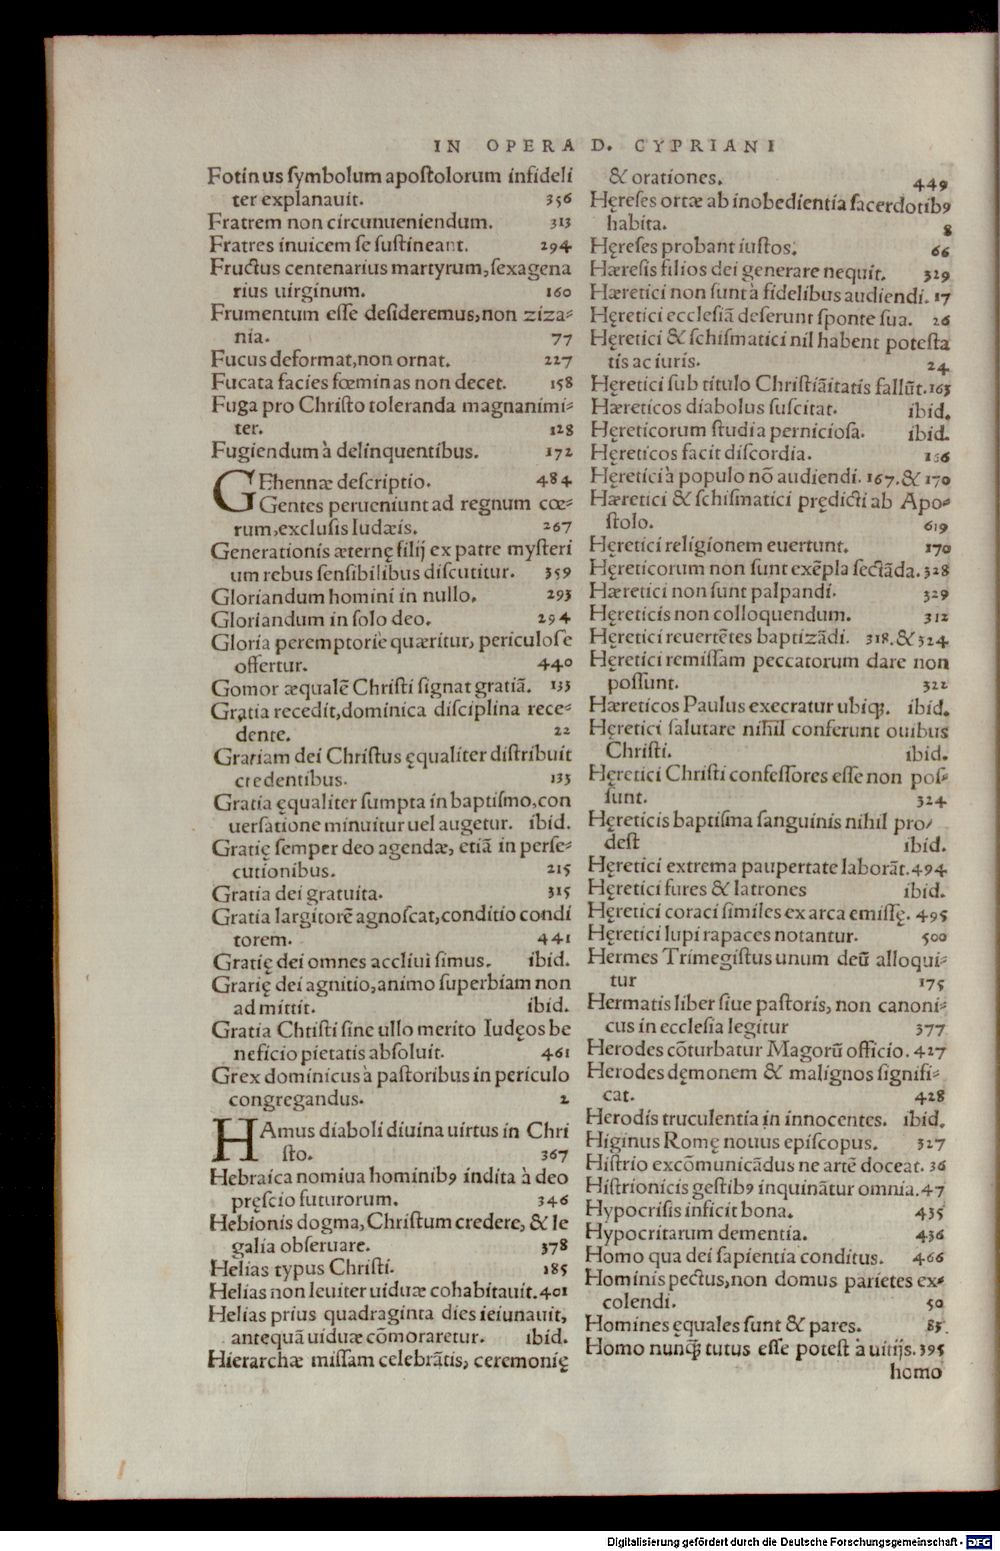 IN OPERA D. CYPRIANI
Fotinus ſymbolum apoſtolorum infideli
ter explanauit. 356
Fratrem non circunueniendum. 313
Fratres inuicem ſe ſuſtineant. 294
Fructus centenarius martyrum, ſexagena
rius uirginum. 160
Frumentum eſſe deſideremus, non ziza⸗
nia. 77
Fucus deformat, non ornat. 227
Fucata facies fœminas non decet. 158
Fuga pro Chriſto toleranda magnanimi⸗
ter. 128
Fugiendum à delinquentibus. 172
GEhennæ deſcriptio. 484
Gentes perueniunt ad regnum cœ⸗
rum, excluſis Iudæis. 267
Generationis æternę filij ex patre myſteri
um rebus ſenſibilibus diſcutitur. 359
Gloriandum homini in nullo. 293
Gloriandum in ſolo deo. 294
Gloria peremptorie quæritur, periculoſe
offertur. 440
Gomor æqualē Chriſti ſignat gratiā. 133
Gratia recedit, dominica diſciplina rece⸗
dente. 22
Gratiam dei Chriſtus ęqualiter diſtribuit
credentibus. 133
Gratia ęqualiter ſumpta in baptiſmo, con
uerſatione minuitur uel augetur. ibid.
Gratię ſemper deo agendæ, etiā in perſe⸗
cutionibus. 215
Gratia dei gratuita. 315
Gratia largitorē agnoſcat, conditio condi
torem. 441
Gratię dei omnes accliui ſimus. ibid.
Grarię dei agnitio, animo ſuperbiam non
admittit. ibid.
Gratia Chtiſti ſine ullo merito Iudęos be
neficio pietatis abſoluit. 461
Grex dominicus à paſtoribus in periculo
congregandus. 2
HAmus diaboli diuina uirtus in Chri
ſto. 367
Hebraica nomiua hominibꝰ indita à deo
pręſcio futurorum. 346
Hebionis dogma, Chriſtum credere, & le
galia obſeruare. 378
Helias typus Chriſti. 185
Helias non leuiter uiduæ cohabitauit. 401
Helias prius quadraginta dies ieiunauit,
antequā uiduæ cōmoraretur. ibid.
Hierarchæ miſſam celebrātis, ceremonię
& orationes. 449
Hęreſes ortæ ab inobedientia ſacerdotibꝰ
habita. 8
Hęreſes probant iuſtos. 66
Hæreſis filios dei generare nequit. 329
Hæretici non ſunt à fidelibus audiendi. 17
Hęretici eccleſiā deſerunt ſponte ſua. 26
Hęretici & ſchiſmatici nil habent poteſta
tis ac iuris. 24
Hęretici ſub titulo Chriſtiāitatis fallūt. 163
Hæreticos diabolus ſuſcitat. ibid.
Hęreticorum ſtudia pernicioſa. ibid.
Hęreticos facit diſcordia. 166
Hęretici à populo nō audiendi. 167. & 170
Hæretici & ſchiſmatici prędicti ab Apo⸗
ſtolo. 619
Hęretici religionem euertunt. 170
Hęreticorum non ſunt exēpla ſectāda. 328
Hæretici non ſunt palpandi. 329
Hęreticis non colloquendum. 312
Hęretici reuertētes baptizādi. 318. & 324
Hęretici remiſſam peccatorum dare non
poſſunt. 322
Hæreticos Paulus execratur ubiqꝫ. ibid.
Hęretici ſalutare nihil conferunt ouibus
Chriſti. ibid.
Hęretici Chriſti confeſſores eſſe non poſ⸗
ſunt. 324
Hęreticis baptiſma ſanguinis nihil pro/
deſt ibid.
Hęretici extrema paupertate laborāt. 494
Hęretici fures & latrones ibid.
Hęretici coraci ſimiles ex arca emiſſę. 495
Hęretici lupi rapaces notantur. 500
Hermes Trimegiſtus unum deū alloqui⸗
tur 175
Hermatis liber ſiue paſtoris, non canoni⸗
cus in eccleſia legitur 377
Herodes cōturbatur Magorū officio. 427
Herodes dęmonem & malignos ſignifi⸗
cat. 428
Herodis truculentia in innocentes. ibid.
Higinus Romę nouus epiſcopus. 327
Hiſtrio excōmunicādus ne artē doceat. 36
Hiſtrionicis geſtibꝰ inquinātur omnia. 47
Hypocriſis inficit bona. 435
Hypocritarum dementia. 436
Homo qua dei ſapientia conditus. 466
Hominis pectus, non domus parietes ex⸗
colendi. 50
Homines ęquales ſunt & pares. 85.
Homo nunꝗ̄ tutus eſſe poteſt à uitijs. 395
homo
Digitalisierung gefördert durch die Deutsche Forschungsgemeinschaft - DFG